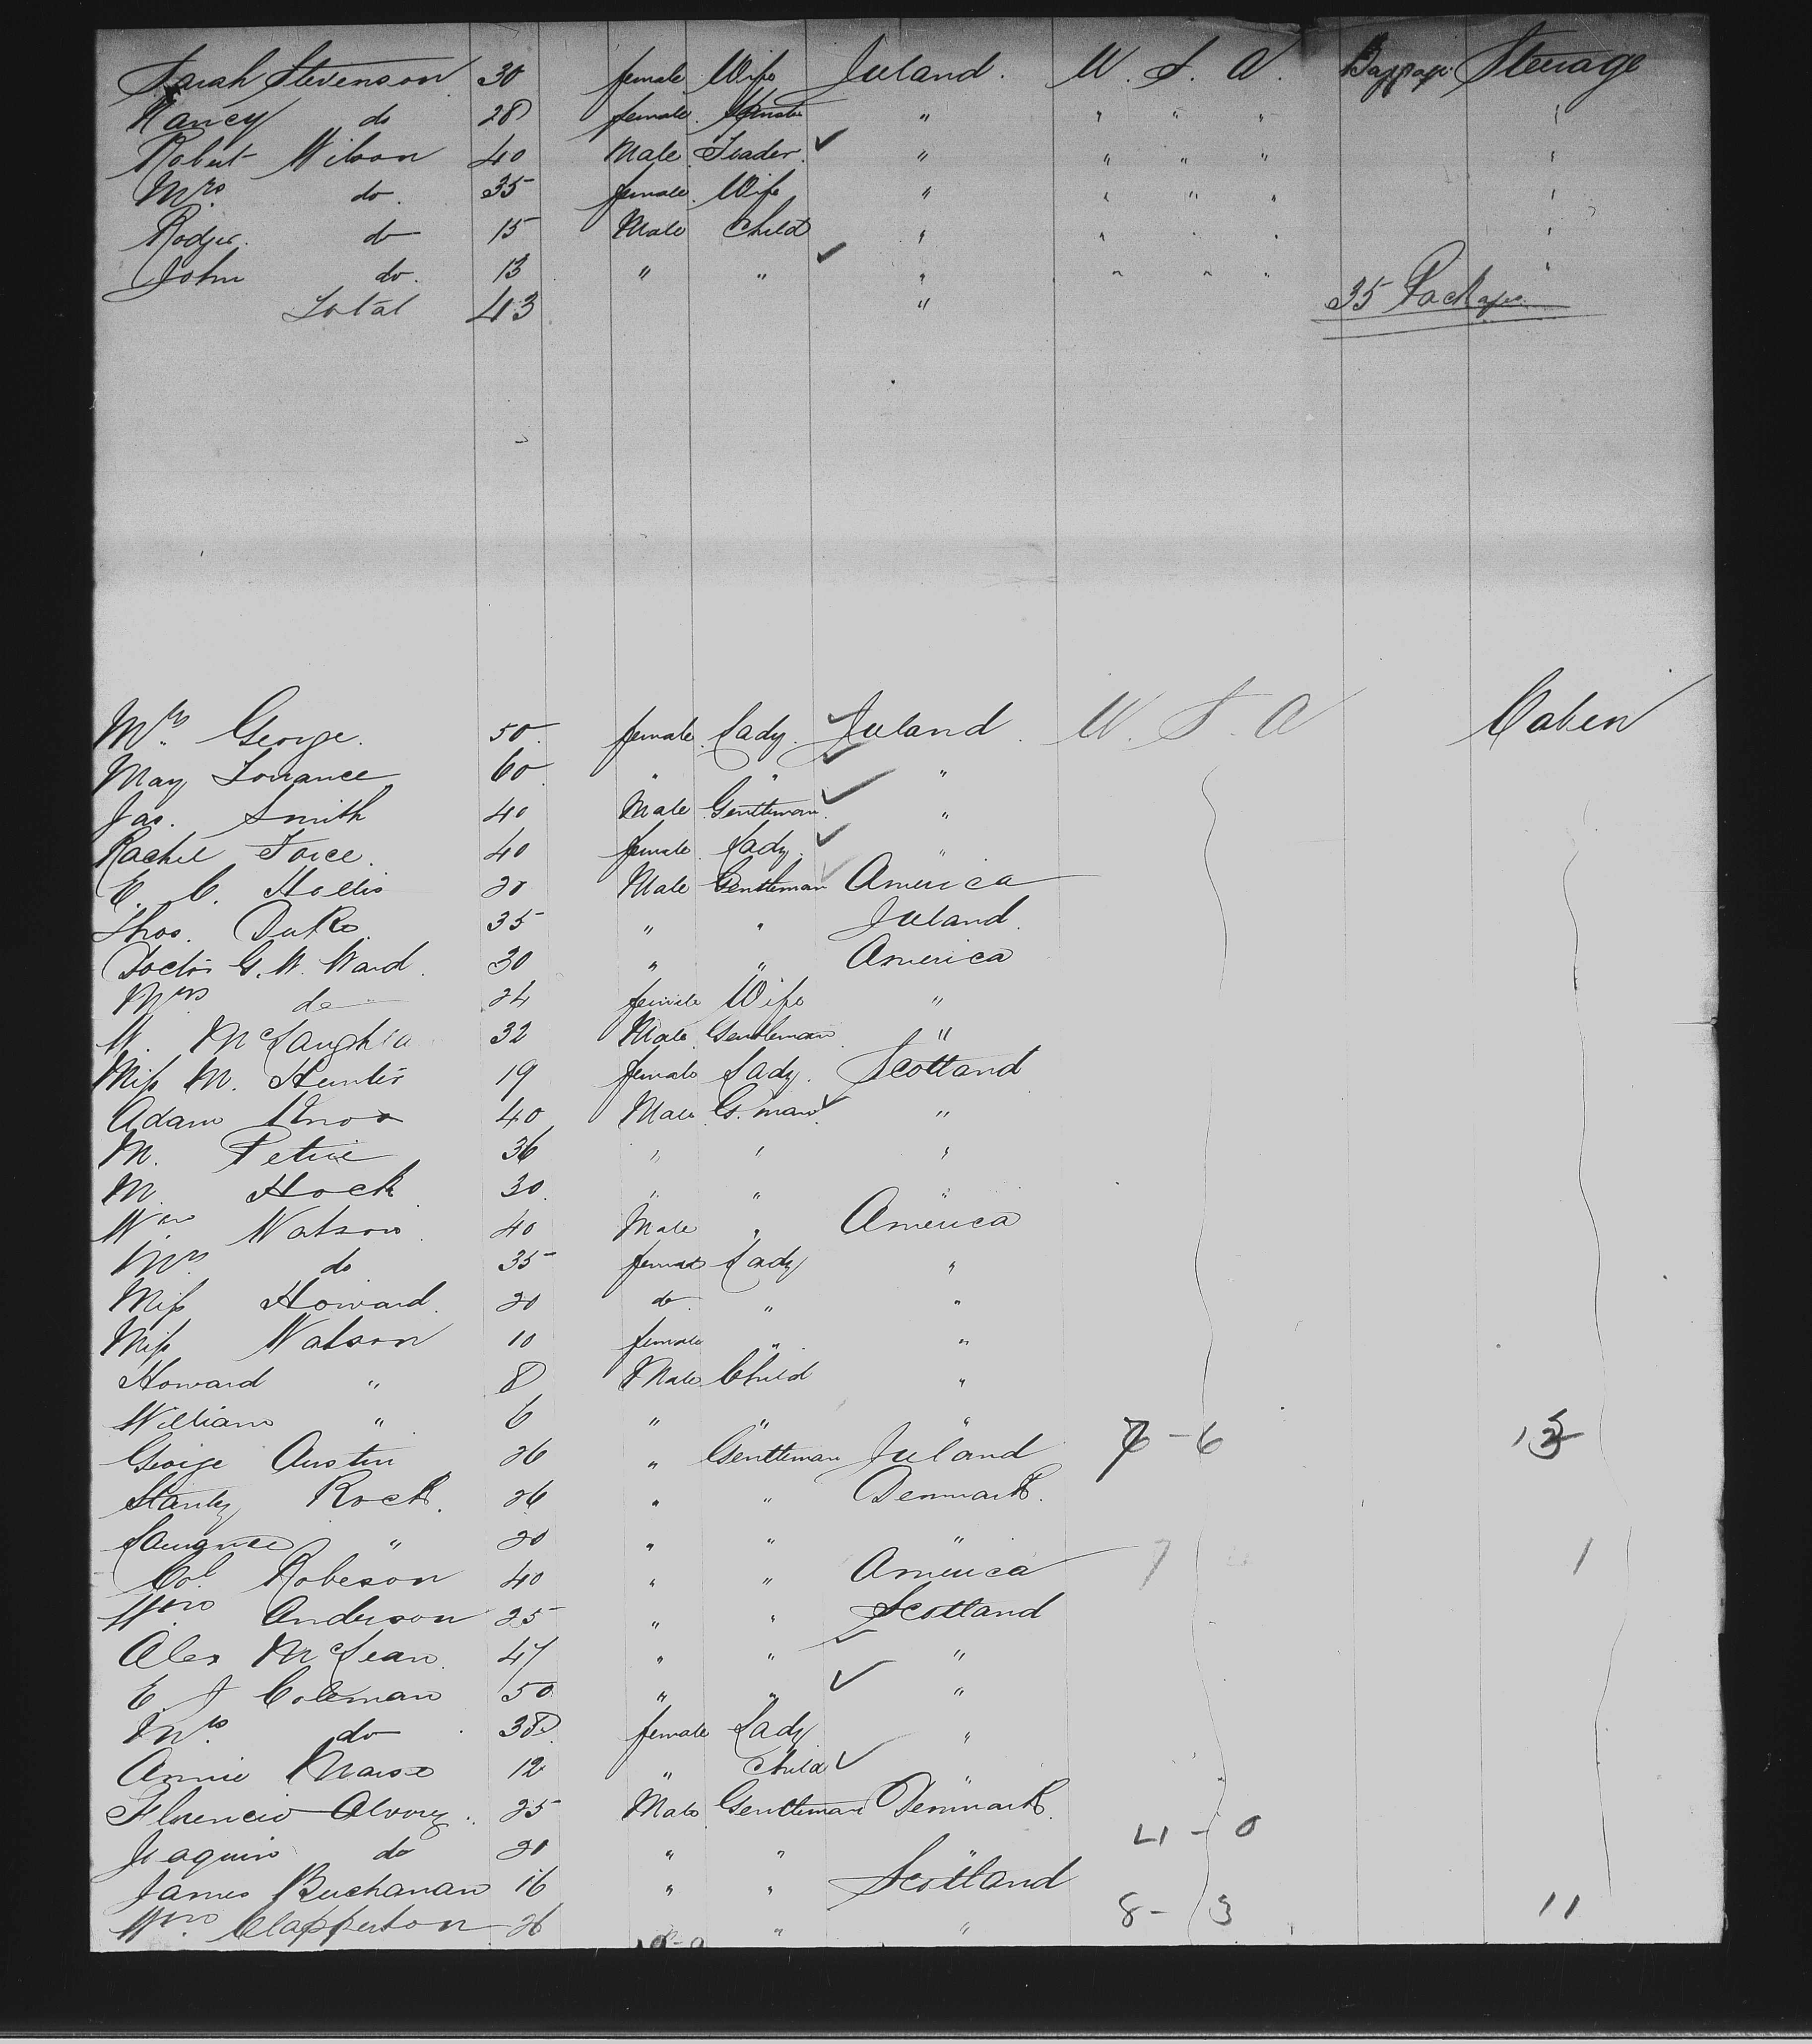 Sarah Stevenson 30 female Wife Ireland. U. S. A. Baggage Steerage
Nancy do 28 female " " " " "
Robert Wilson 40 Male Trader. " " " " "
Mrs. do. 35 female. Wife " " " " "
Rodger. do 15 Male Child " " " " "
John do. 13 " " " " " " "
Total 43 " 35 Packages
Mrs. George. 50. female. Lady. Ireland. U. S. A Caben
May Torrance 60 " " "
Jas. Smith 40 Male Gentleman. "
Rachel 40 female Lady. "
E. C. Hollis 20 Male Gentleman America
Thos. Duke 35 " " Ireland.
Doctor G. W. Ward. 30 " " America
Mrs do 24 female Wife "
W. McLaughla 32 Male Gentleman "
Miss M. Hunter 19 female Lady. Scotland
Adam Knox 40 Male G. man "
M. Petrie 36 " " "
M. Hock 30. " " "
Wm Watson. 40 Male " America
Mrs. do 35 female Lady "
Miss Howard. 20 do " "
Miss Watson 10 female " "
Howard " 8 Male Child "
William " 6 " " " 6
George Austin 26 " Gentleman Ireland
Stanley Rock. 26 " " Denmark.
" 20 " " "
Col. Robeson 40 " " America 7 1
Wm. Anderson 25 " " Scotland
Alex McLean. 47 " " "
E. J Coleman 50 " " "
Mrs. do 38. female Lady "
Annie 12 " Child "
Florencio Alvarez. 25 Male Gentleman Denmark.
Joaquin do 20 " " " 4 - 0
James Buchanan 16 " " Scotland
Wm. Clapperton 26 " " 8 - 3 11